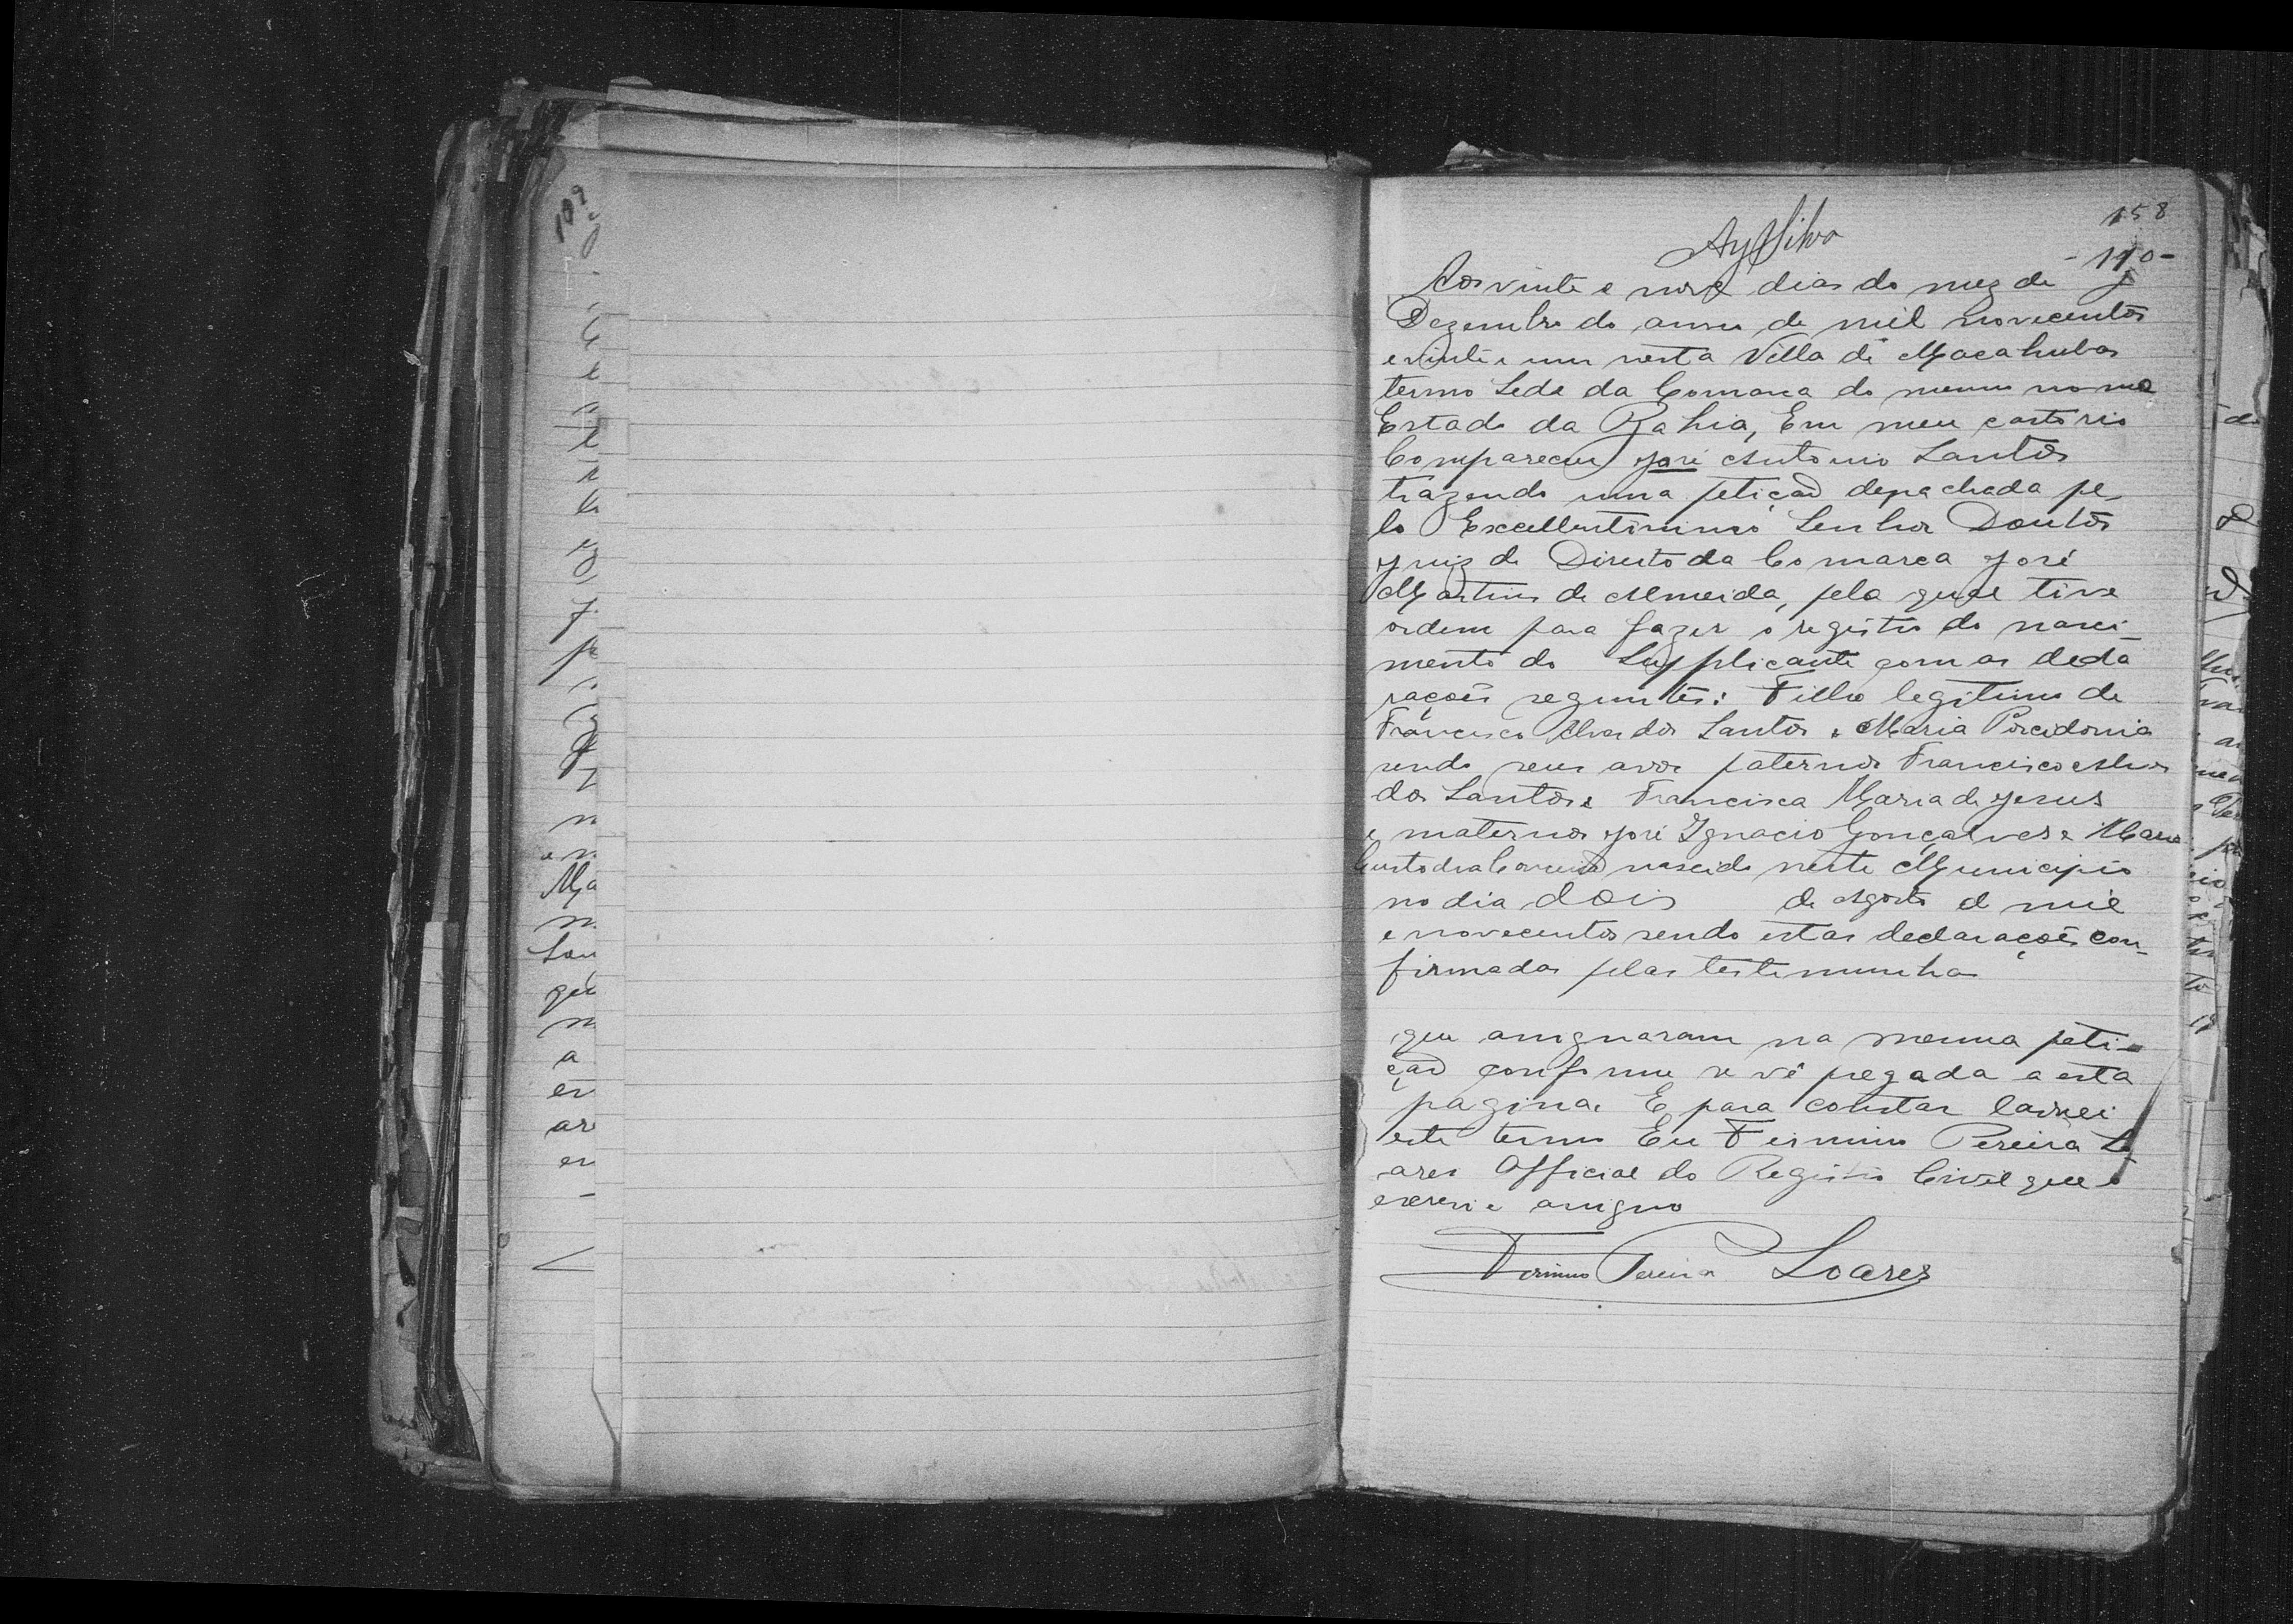 158
AySilva
-110-
Aos vinte e nove dias do mez de
Dezembro do anno de mil novecentos
e vinte e um nesta Villa de Macahubas
termo Sede da Comarca do mesmo nome
Estado da Bahia, Em meu cartorio
Compareceu José Antonio Santos
trazendo uma petição depachada pe-
lo Excellentissimo Senhor Doutor
Juiz de Direito da Comarca José
Martins de Almeida, pela qual tive
ordem para fazer o registro do nasci-
mento do Supplicante com as decla
rações seguintes: Filho legitimo de
Francisco Alves dos Santos e Maria Poscidonia
sendo seus avos paternos Francisco Alves
dos Santos e Francisca Maria de Jesus
e maternos José Ignacio Gonçalves e Maria
Custodia nascido neste Municipio
no dia dois de Agosto de mil
e novecentos sendo estas declarações con-
firmadas pelas testemunhas
que assignaram na mesma peti-
ção conforme se vê pregada a esta
pagina. E para constar lavrei
este termo Eu Firmino Pereira So-
ares Official do Registro Civil que o
escrevi e assigno
Firmino Pereira Soares
109
Ma
San
que
a
en
ar
en